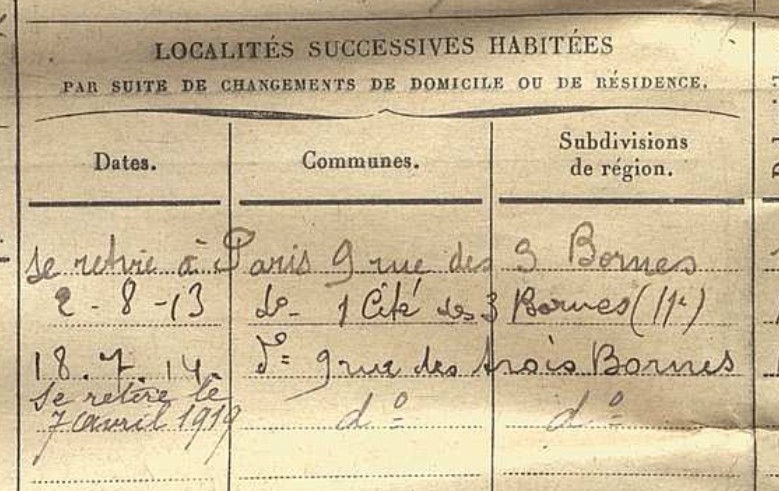 LOCALITÉS SUCCESSIVES HABITÉES
PAR SUITE DE CHANGEMENTS DE DOMICILE OU DE RÉSIDENCE.
Dates. Communes. Subdivisions de région.
se retire à Paris 9 rue des 3 Bornes
2-8-13 do- 1 Cité des 3 Bornes (11e)
18.7.14. do= 9 rue des trois Bornes
se retire le
7 avril 1919 do= do=